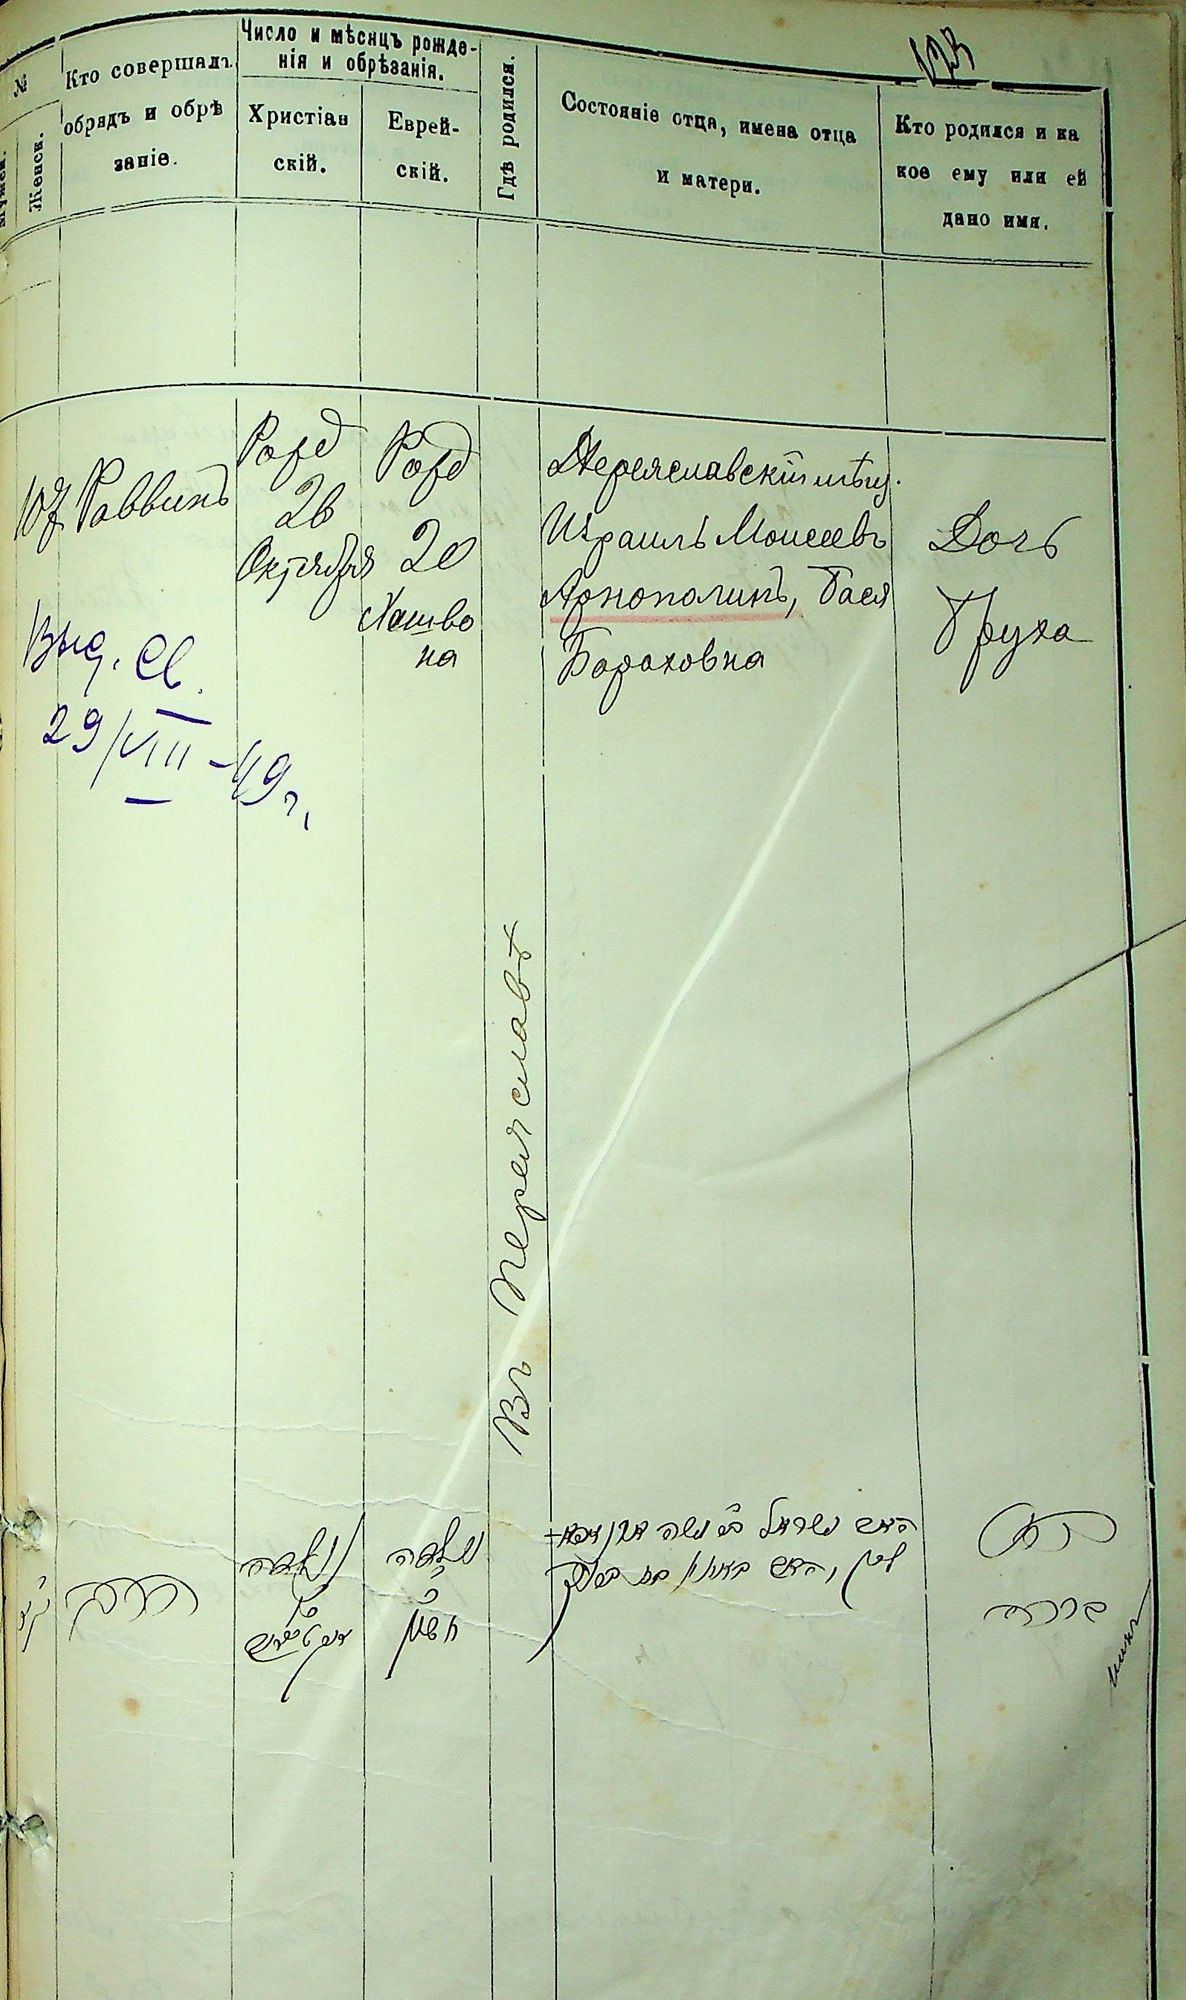 123
№
Мужск.
Женск.
Кто совершалъ
обрядъ и обрѣ
заніе.
Число и мѣсяцъ рожде-
нія и обрѣзанія.
Христіан
скій.
Еврей-
скій.
Гдѣ родился.
Состояніе отца, имена отца
и матери.
Кто родился и ка
кое ему или ей
дано имя.
107
Раввинъ
Рожд
26
Октября
Рожд
20
Хешво
на
Въ Переяславѣ
Переяславскій мѣщ.
Израиль Моисеевъ
Арнополинъ, Бася
Бороховна
Дочь
Бруха
Выд. св.
29/VIII-49 г.
הרב
חשון
ברכה